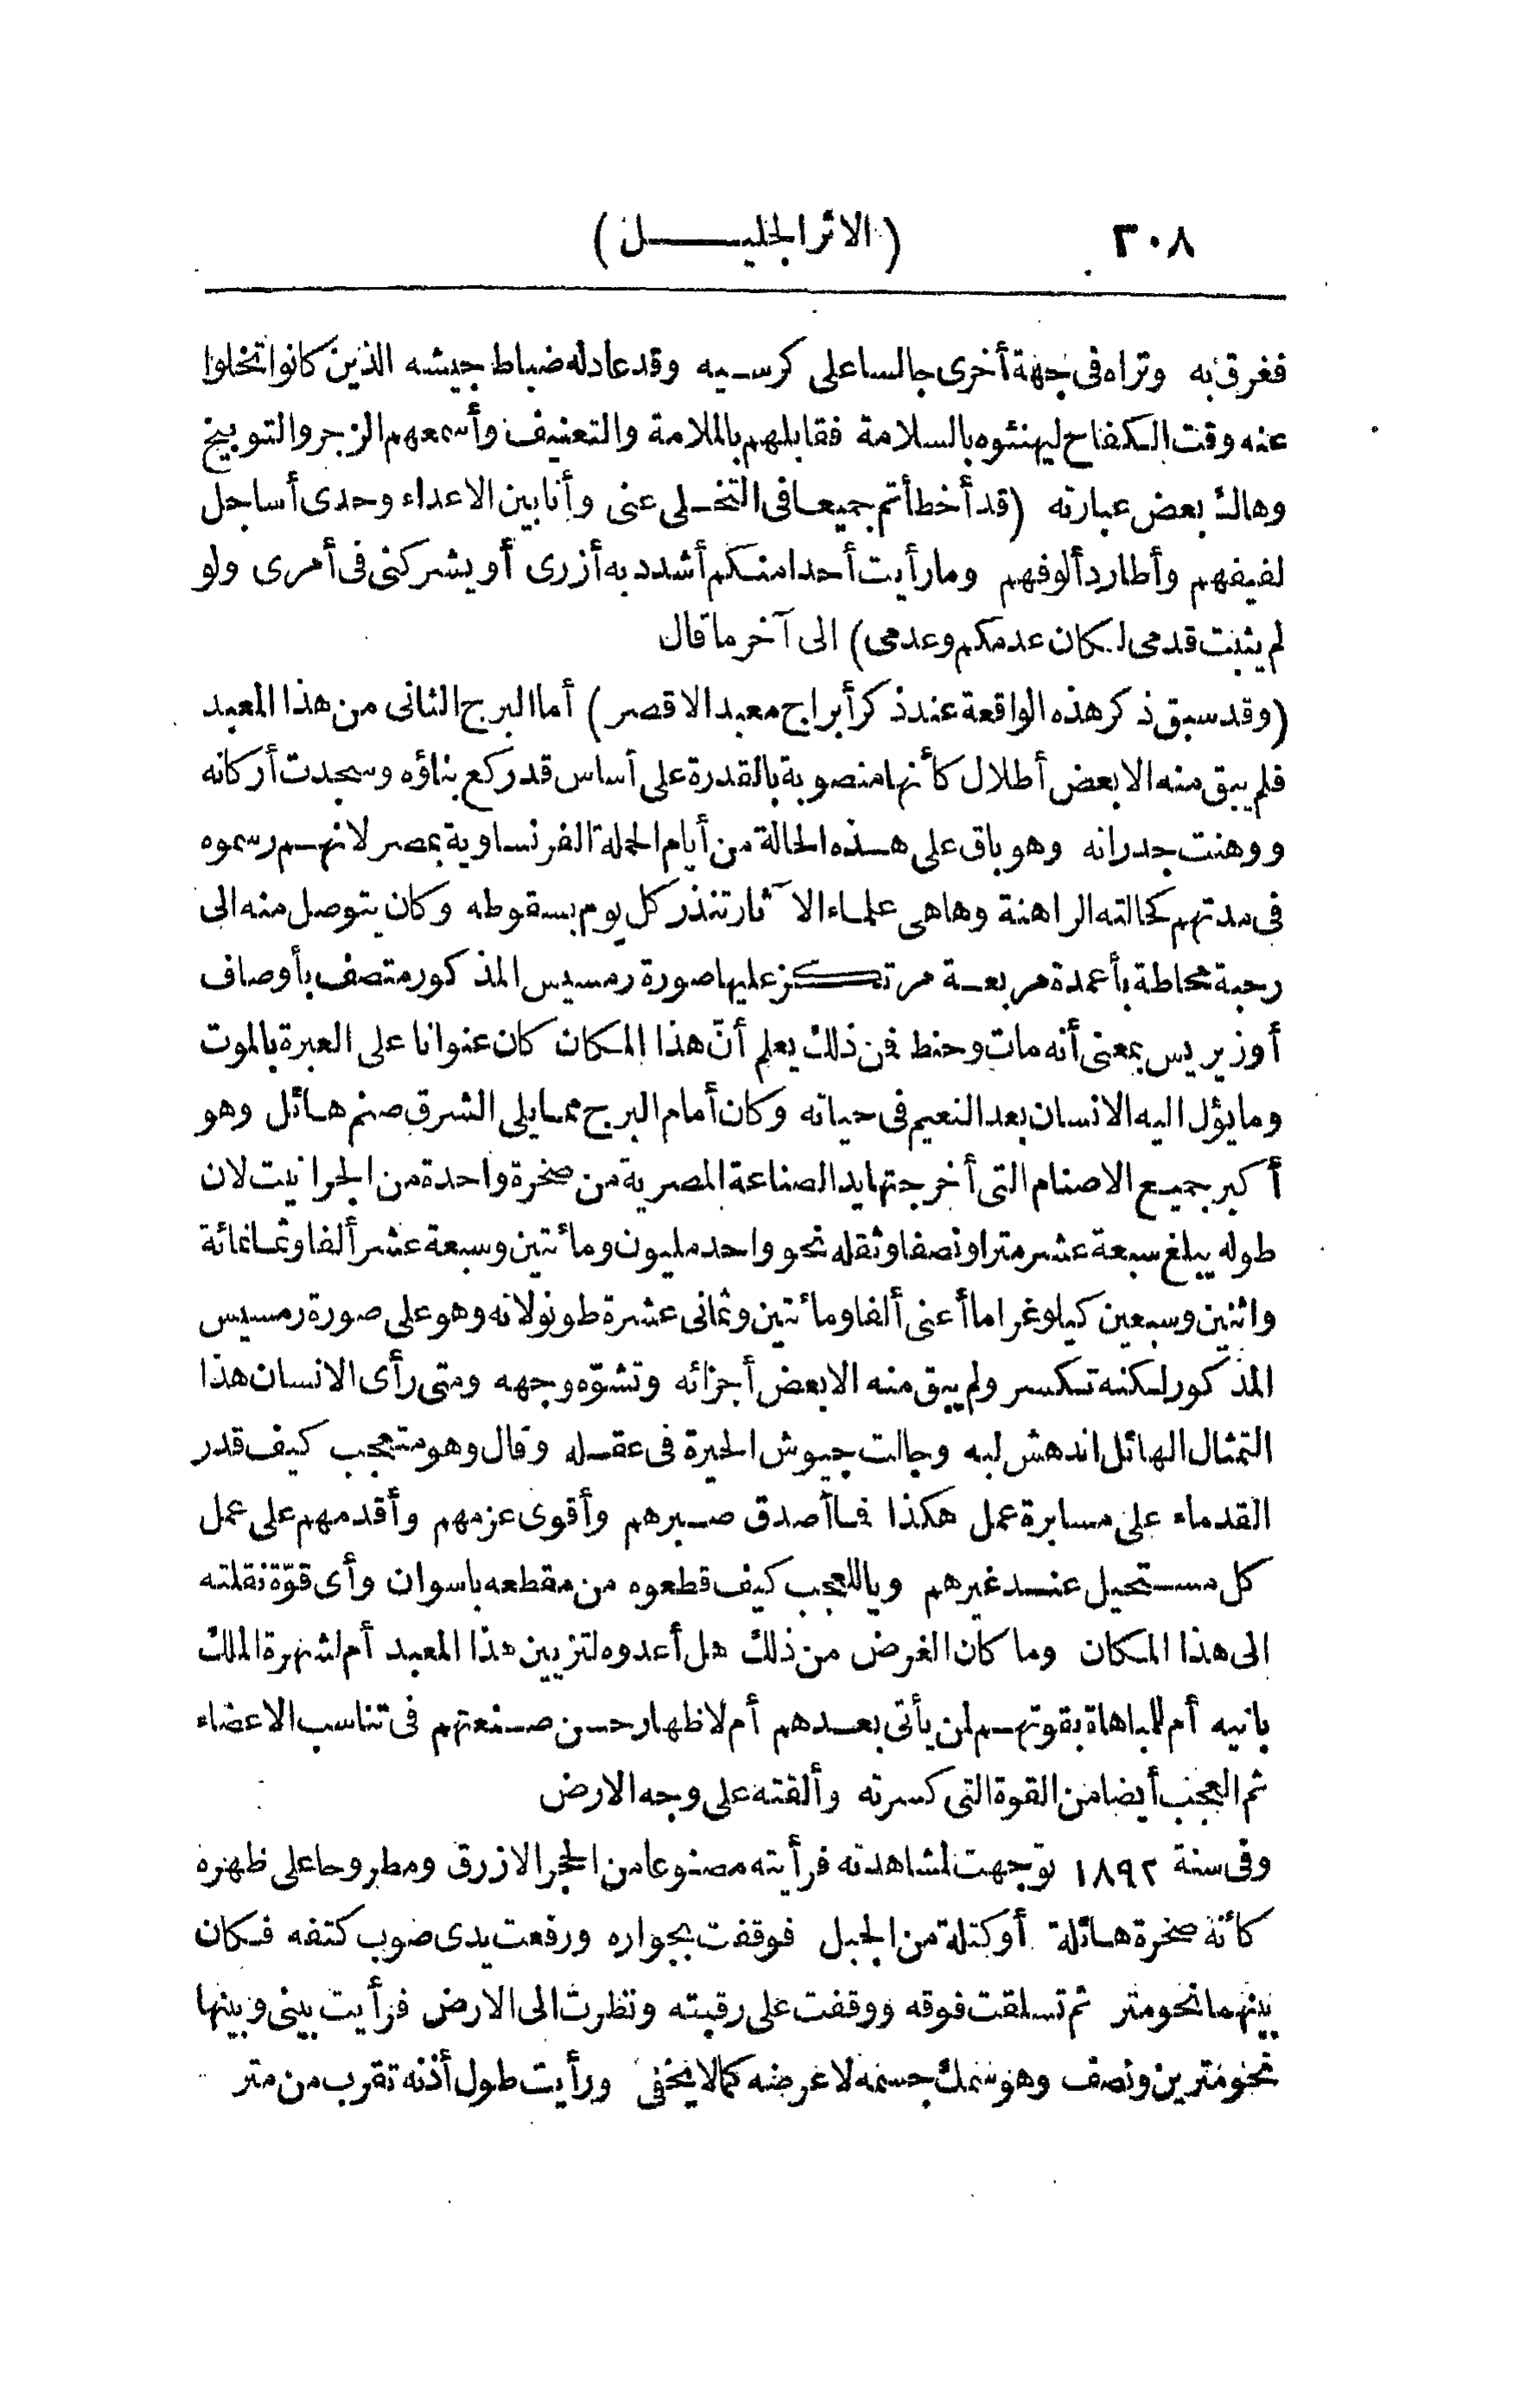 ٣٠٨ (الاثر الجليل)
فغرق به وتراه فى جهة أخرى جالسا على كرسيه وقد عاد له ضباط جيشه الذين كانوا تخلوا
عنه وقت الكفاح ليهنئوه بالسلامة فقابلهم بالملامة والتعنيف وأسمعهم الزجر والتوبيخ
وهاك بعض عبارته (قد أخطأتم جميعا فى التخلى عنى وأنا بين الاعداء وحدى أساجل
لفيفهم وأطارد ألوفهم وما رأيت أحدا منكم أشدد به أزرى أو يشركنى فى أمرى ولو
لم يثبت قدمى لكان عدمكم وعدمى) الى آخر ما قال
(وقد سبق ذكر هذه الواقعة عند ذكر أبراج معبد الاقصر) أما البرج الثانى من هذا المعبد
فلم يبق منه الا بعض أطلال كأنها منصوبة بالقدرة على أساس قد ركع بناؤه وسجدت أركانه
ووهنت جدرانه وهو باق على هذه الحالة من أيام الحملة الفرنساوية بمصر لانهم رسموه
فى مدتهم كحالته الراهنة وها هى علماء الآثار تنذر كل يوم بسقوطه وكان يتوصل منه الى
رحبة محاطة بأعمدة مربعة مرتكز عليها صورة رمسيس المذكور متصف بأوصاف
أوزيريس بمعنى أنه مات وحنط فمن ذلك يعلم أنّ هذا المكان كان عنوانا على العبرة بالموت
وما يؤل اليه الانسان بعد النعيم فى حياته وكان أمام البرج مما يلى الشرق صنم هائل وهو
أكبر جميع الاصنام التى أخرجتها يد الصناعة المصرية من صخرة واحدة من الجرانيت لان
طوله يبلغ سبعة عشر مترا ونصفا وثقله نحو واحد مليون ومائتين وسبعة عشر ألفا وثمانمائة
واثنين وسبعين كيلوغراما أعنى ألفا ومائتين وثمانى عشرة طونولاته وهو على صورة رمسيس
المذكور لكنه تكسر ولم يبق منه الا بعض أجزائه وتشوّه وجهه ومتى رأى الانسان هذا
التمثال الهائل اندهش لبه وجالت جيوش الحيرة فى عقله وقال وهو متعجب كيف قدر
القدماء على مسابرة عمل هكذا فما أصدق صبرهم وأقوى عزمهم وأقدمهم على عمل
كل مستحيل عند غيرهم وياللعجب كيف قطعوه من مقطعه باسوان وأى قوّة نقلته
الى هذا المكان وما كان الغرض من ذلك هل أعدوه لتزيين هذا المعبد أم لشهرة الملك
بانيه أم للمباهاة بقوتهم لمن يأتى بعدهم أم لاظهار حسن صنعتهم فى تناسب الاعضاء
ثم العجب أيضا من القوة التى كسرته وألقته على وجه الارض
وفى سنة ١٨٩٢ توجهت لمشاهدته فرأيته مصنوعا من الحجر الازرق ومطروحا على ظهره
كأنه صخرة هائلة أو كتلة من الجبل فوقفت بجواره ورفعت يدى صوب كتفه فكان
بينهما نحو متر ثم تسلقت فوقه ووقفت على رقبته ونظرت الى الارض فرأيت بينى وبينها
نحو مترين ونصف وهو سمك جسمه لا عرضه كما لا يخفى ورأيت طول أذنه تقرب من متر